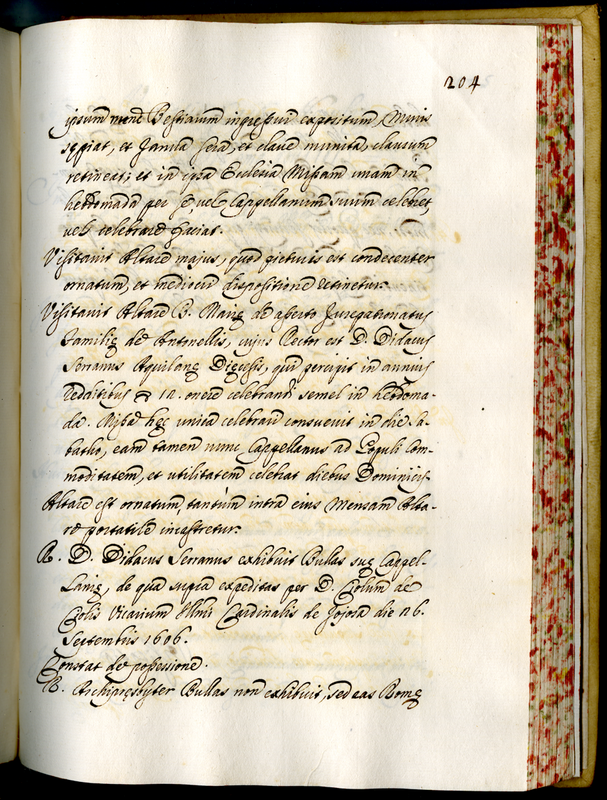 204
ipsum nemo Bestiarum ingressui expositum, Muris
sepiat, et Janua sera, et clave munita, clausum
retineat; et in ipsa Ecclesia Missam unam in
hebdomada per se, vel Cappellanum suum celebret,
vel celebrare faciat.
Visitavit Altare majus, quod picturis est condecenter
ornatum, et mediocri dispositione retinetur.
Visitavit Altare B. Marię de aperto Jurepatronatus
Familię de Antonellis, cujus Rector est D. Didacus
Serranus Aquilanę Dięcesis, qui percipit in annuis
redditibus 12. onere celebrandi semel in hebdoma-
da. Missa hęc unica celebrari consuevit in die
batho, eam tamen nunc Cappellanus ad Populi Com-
moditatem, et utilitatem celebrat diebus Dominicis.
Altare est ornatum, tantum intra eius Mensam Alta-
re portatile incastretur.
R. D. Didacus Serranus exhibuit Bullas suę Cappel-
lanię, de qua supra expeditas per D. de
Vicarium Illmi Cardinalis de Jojosa die 26.
Septembris 1606.
Constat de possessione.
R. Archipresbyter Bullas non exhibuit, sed eas Romę